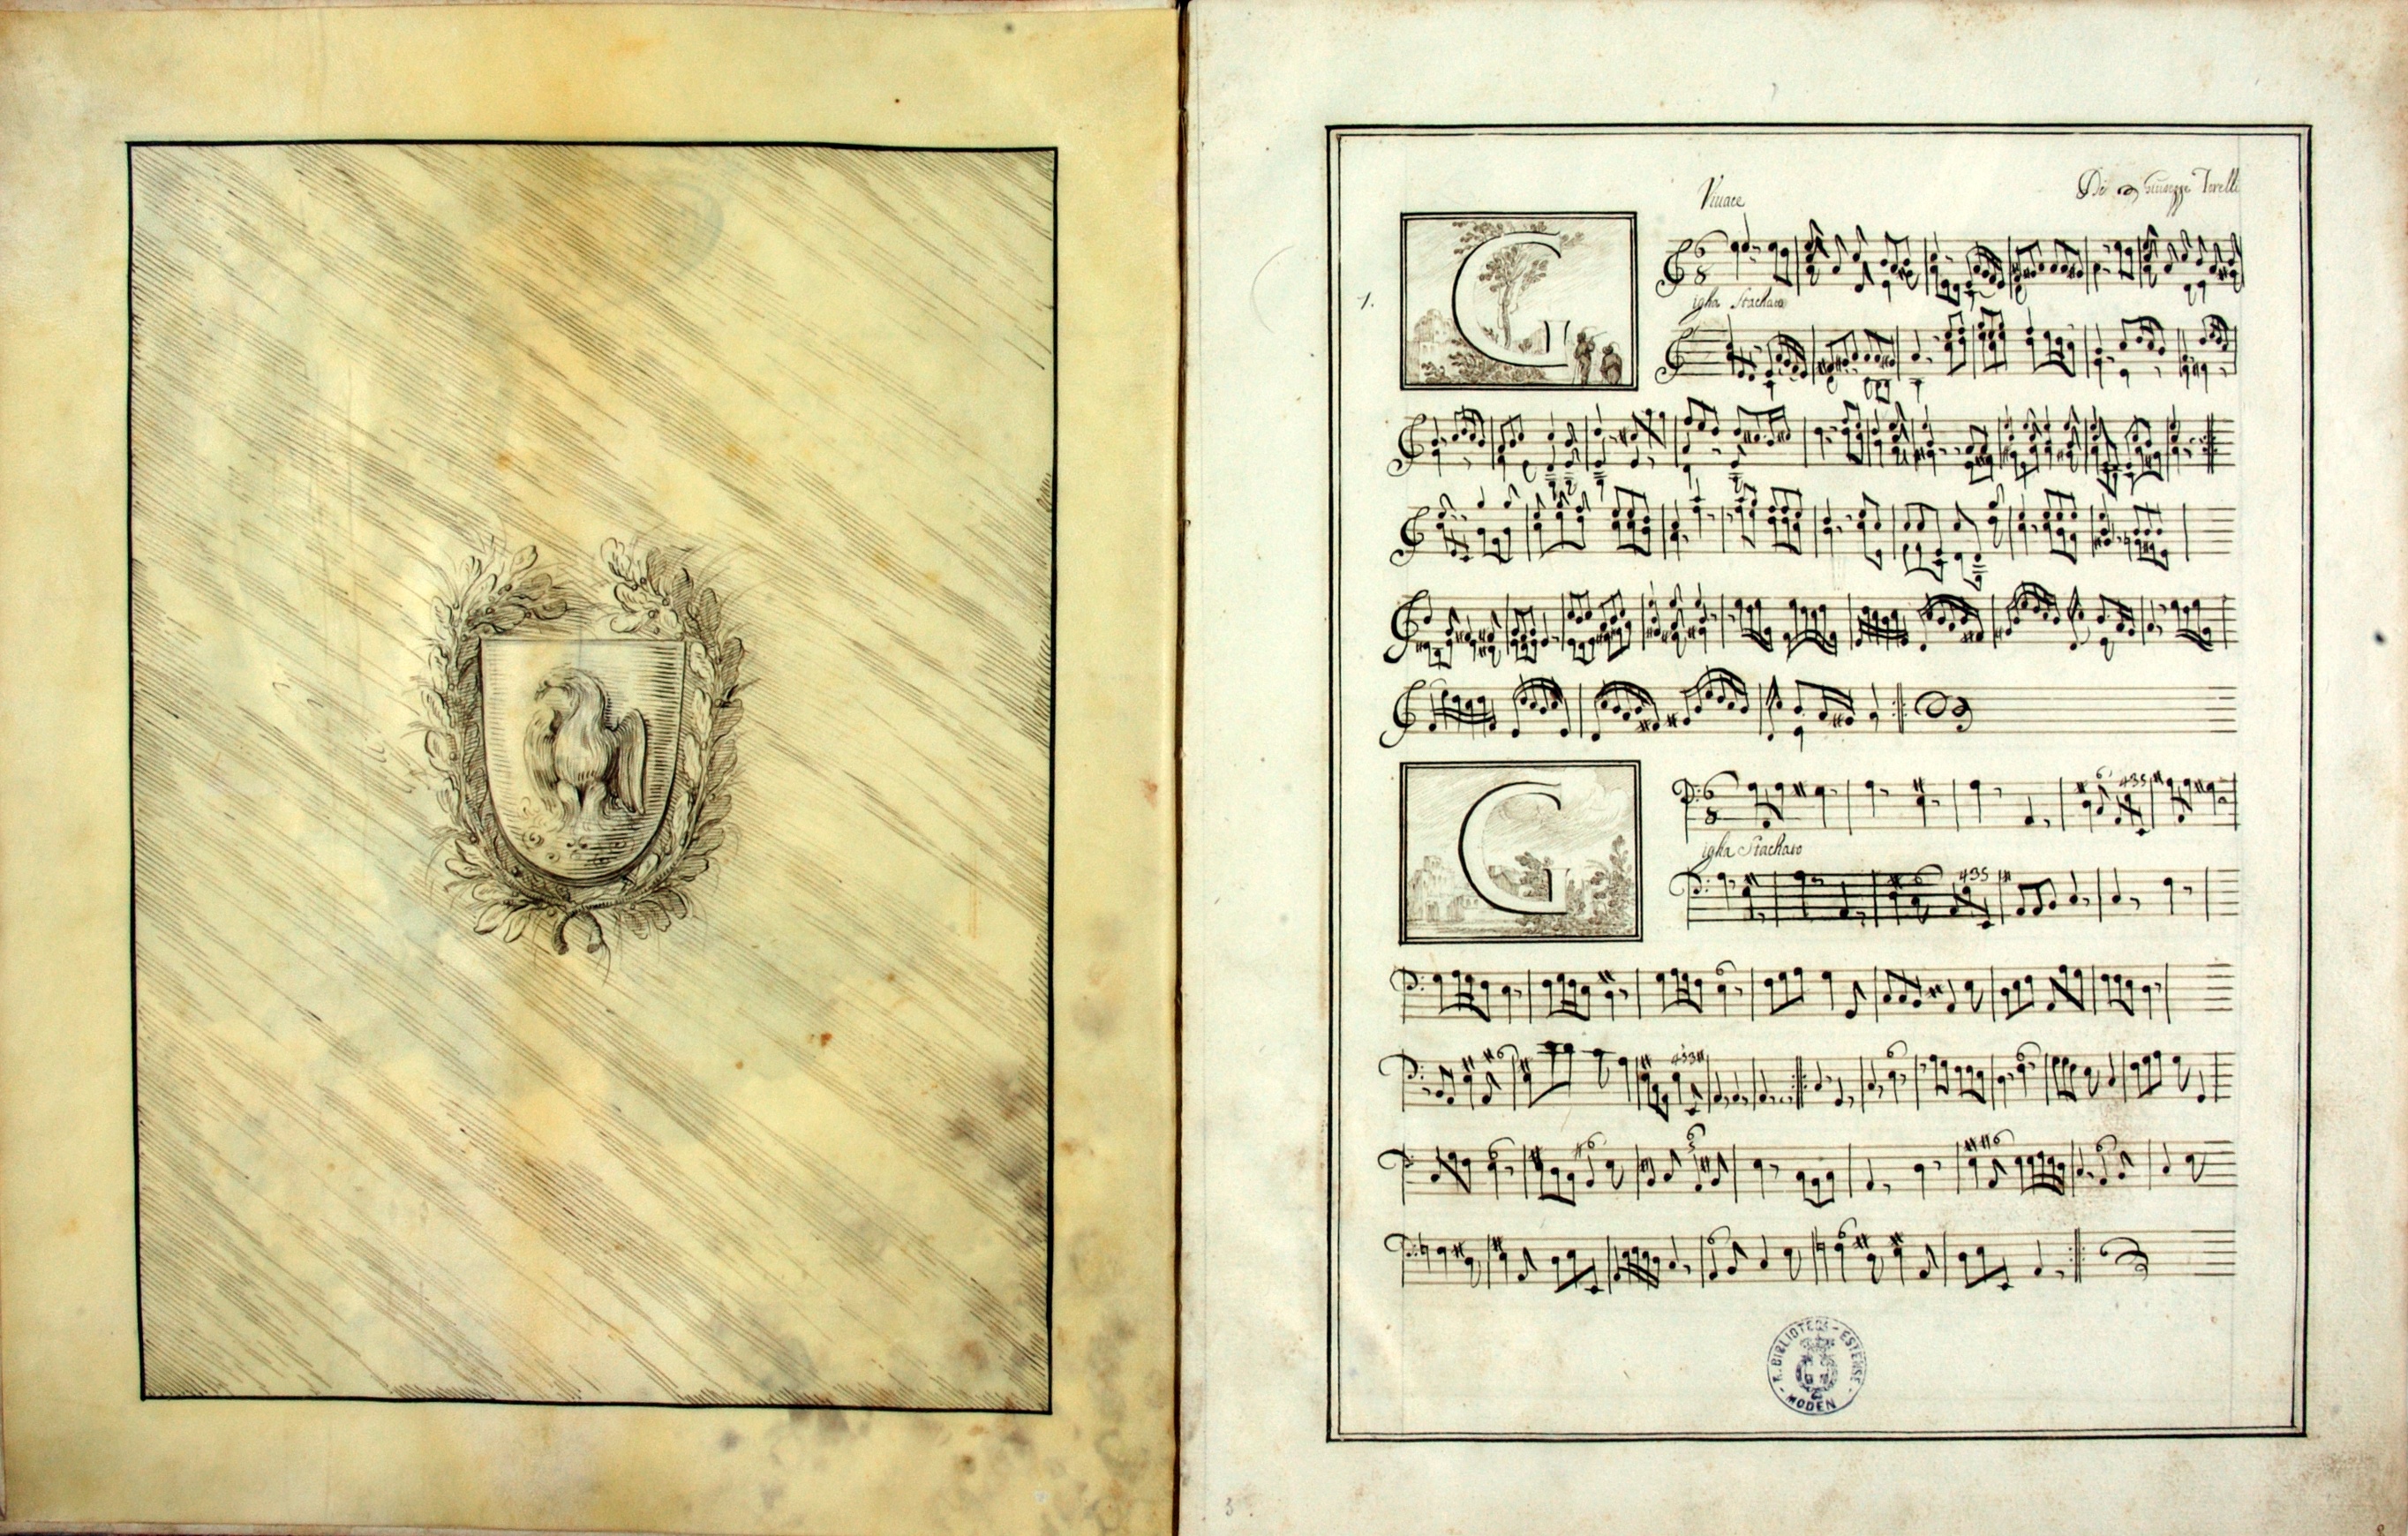 Viuace
Del Sig Giuseppe Torelli
1.
G
igha Stachato
G
igha Stachato
R. BIBLIOTECA ESTENSE
MODEN
3